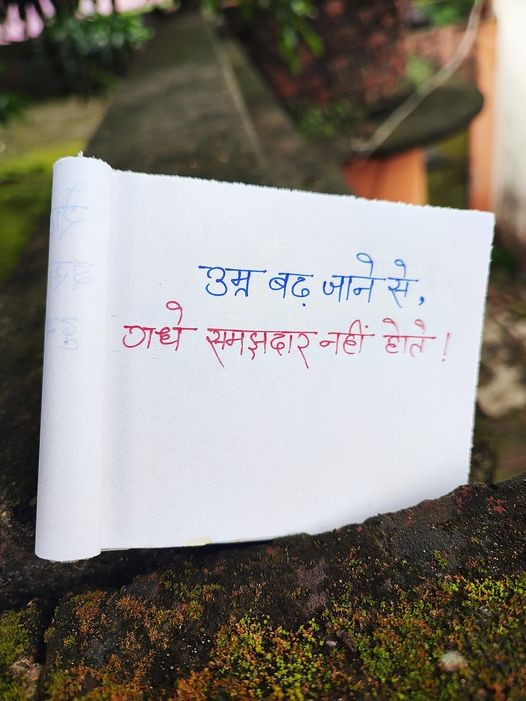 उम्र बढ़ जाने से,
गधे समझदार नहीं होते!